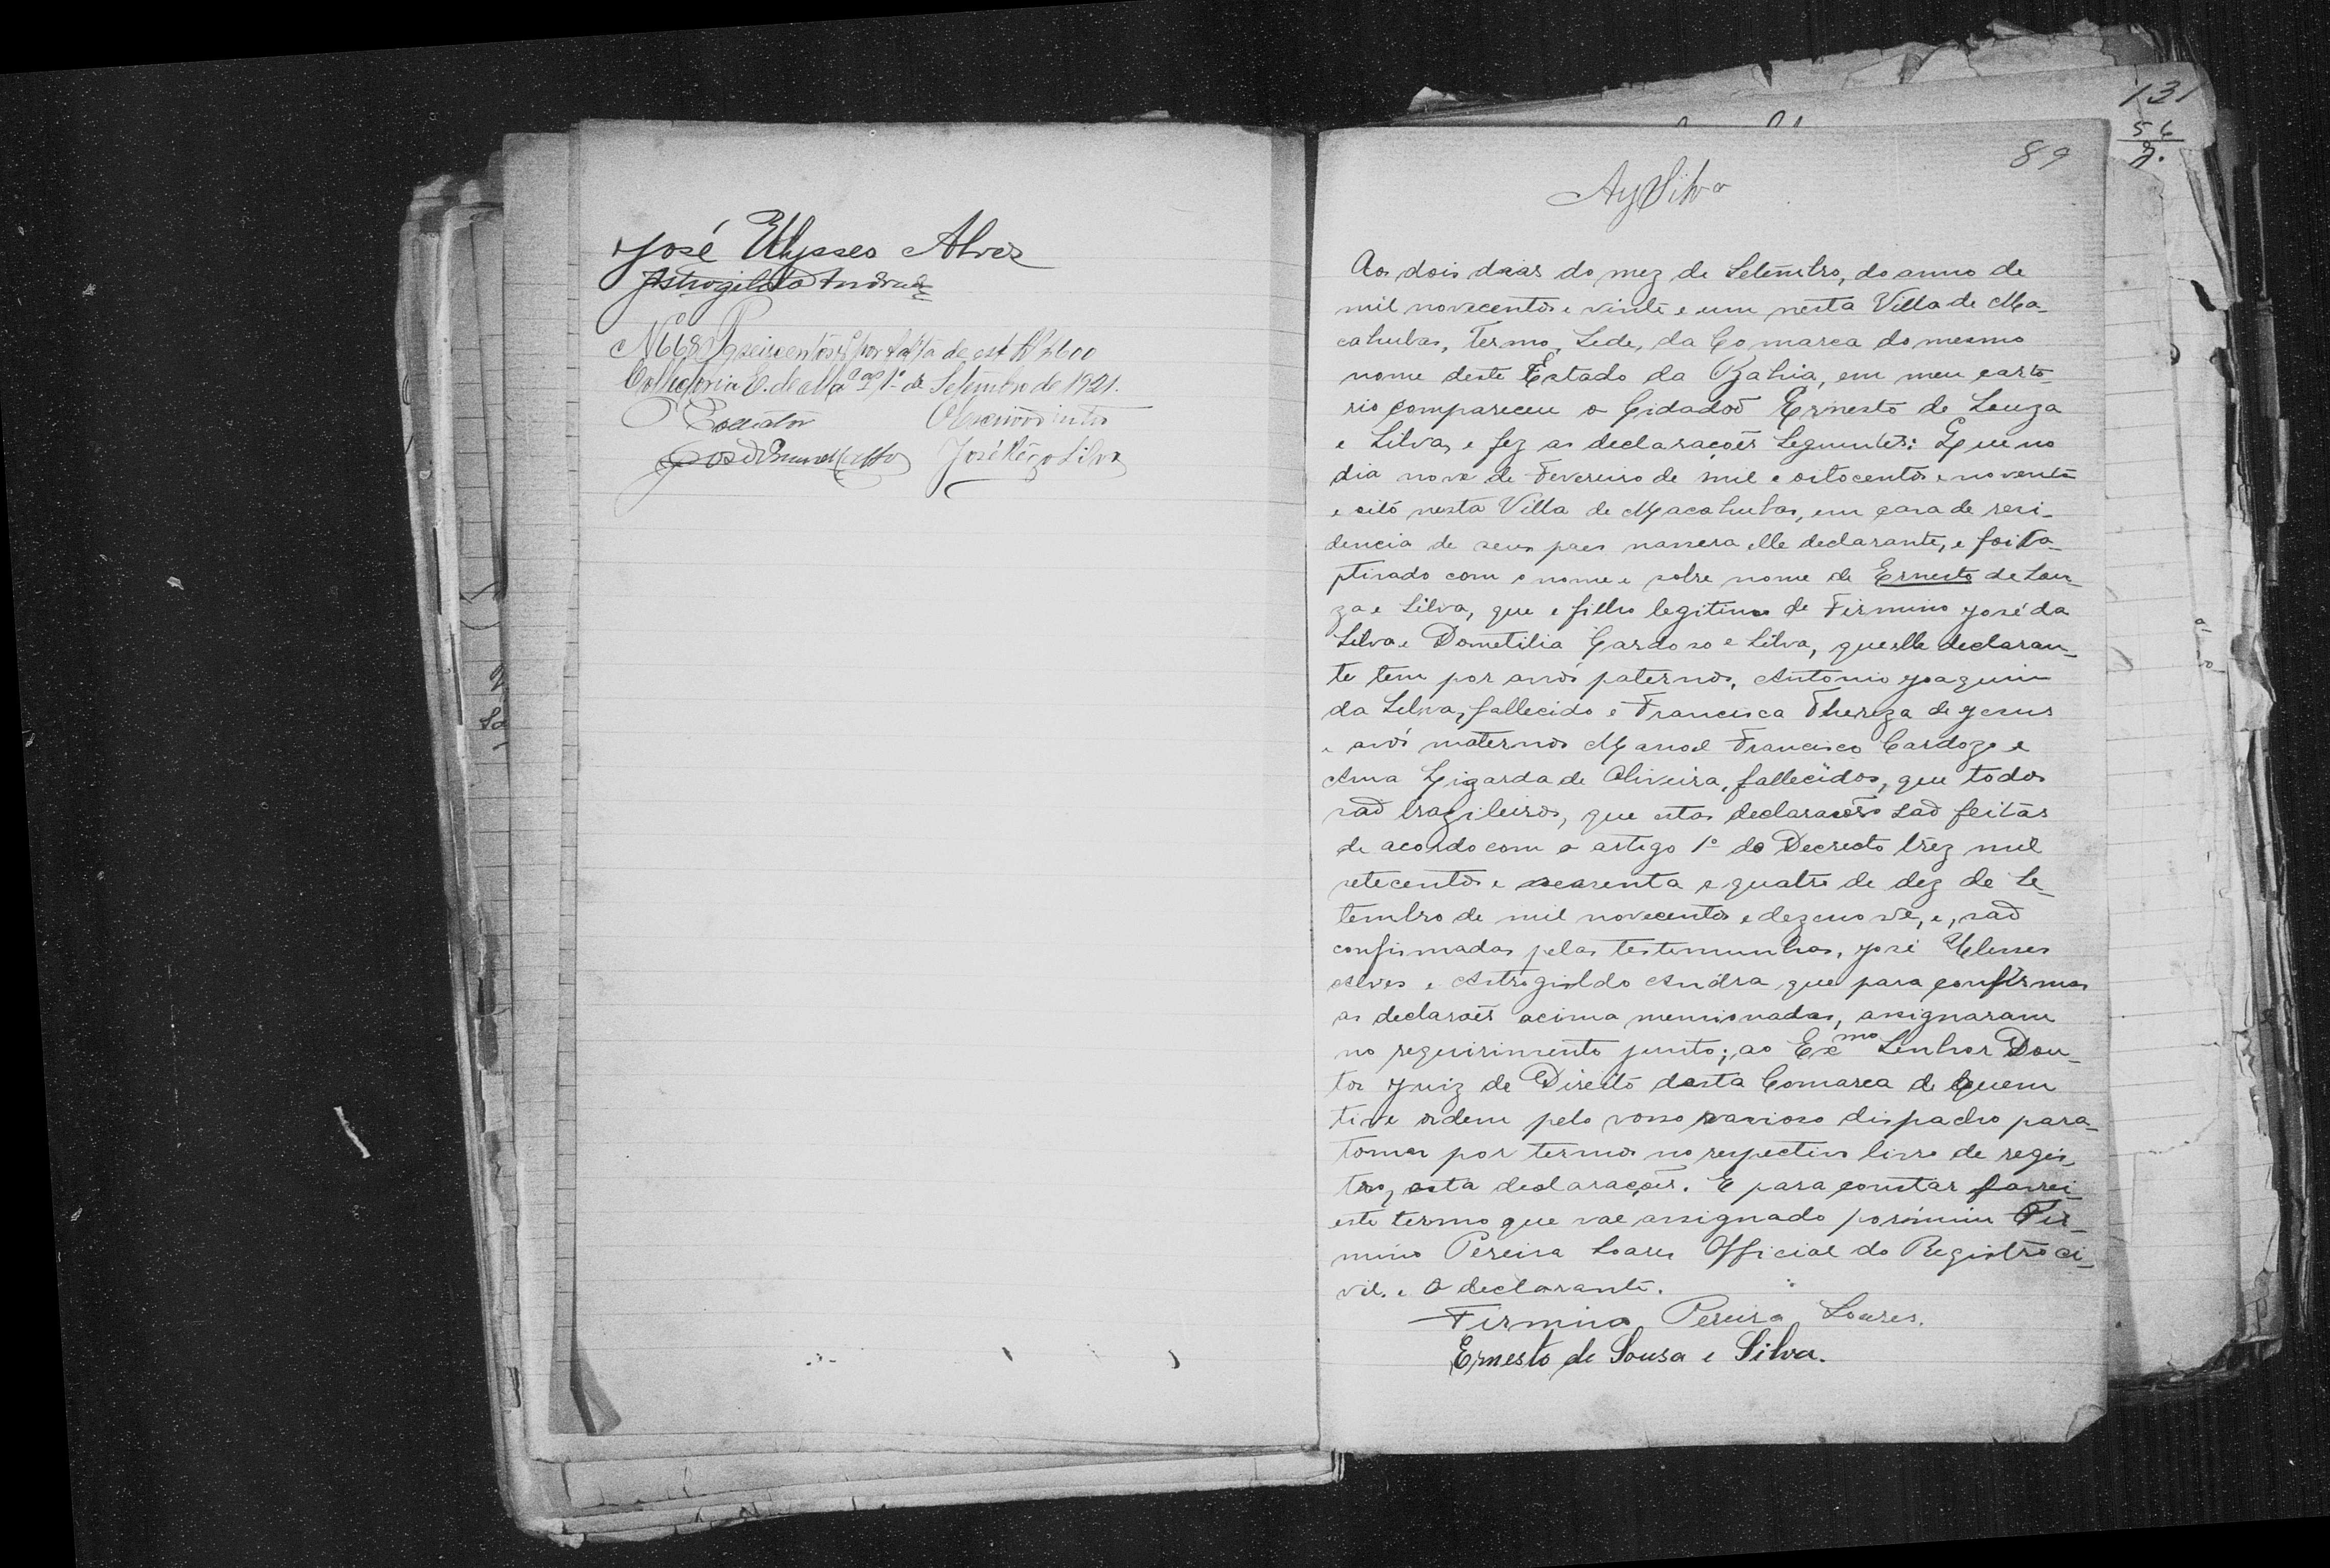 José Ulysses Alves
Astrogildo Andrade
N 668 Pg seiscentos rs por falta de est. R$ 600
Collectoria E. de Macas 1º de Setembro de 1921.
O Escrivão
José Rêgo Silva
131
56
2.
89
Ay Silva
Aos dois dias do mez de Setembro, do anno de
mil novecentos e vinte e um nesta Villa de Ma-
cahubas, Termo, Sede, da Comarca do mesmo
nome deste Estado da Bahia, em meu carto-
rio compareceu o Cidadoõ Ernesto de Souza
e Silva, e fez as declarações Seguintes: Que no
dia nove de Fevereiro de mil e oitocentos e noventa
e oito nesta Villa de Macahubas, em casa de resi-
dencia de seus paes nassera elle declarante, e foi ba-
ptisado com o nome e sobre nome de Ernesto de Sou-
za e Silva, que e filho legitimo de Firmino José da
Silva e Dometilia Cardoso e Silva, que elle declaran-
te tem por avós paternos, Antonio Joaquim
da Silva, fallecido e Francisca Thereza de Jesus
e avós maternos Manoel Francisco Cardozo e
Anna Lizarda de Oliveira, fallecidos, que todos
saõ brazileiros, que estas declarações saõ feitas
de acordo com o artigo 1º do Decrecto trez mil
setecentos e sessenta e quatro de dez de Se-
tembro de mil novecentos e dezenove, e, saõ
confirmadas pelas testemunhas, José Ulisses
Alves e Astrogildo Andra que para confirmar
as declarões acima mencionadas, assignaram
no requirimento junto; ao Exmo Senhor Dou-
tor Juiz de Direito desta Comarca de quem
tive ordem pelo vosso despacho para-
tomar por termos no respectivo livro de regis-
tro, esta declarações. E para constar lavrei
este termo que vae assignado por mim Fir-
mino Pereira Soares Official do Registro ci-
vil. e O declarante.
Firmino Pereira Soares.
Ernesto de Sousa e Silva.